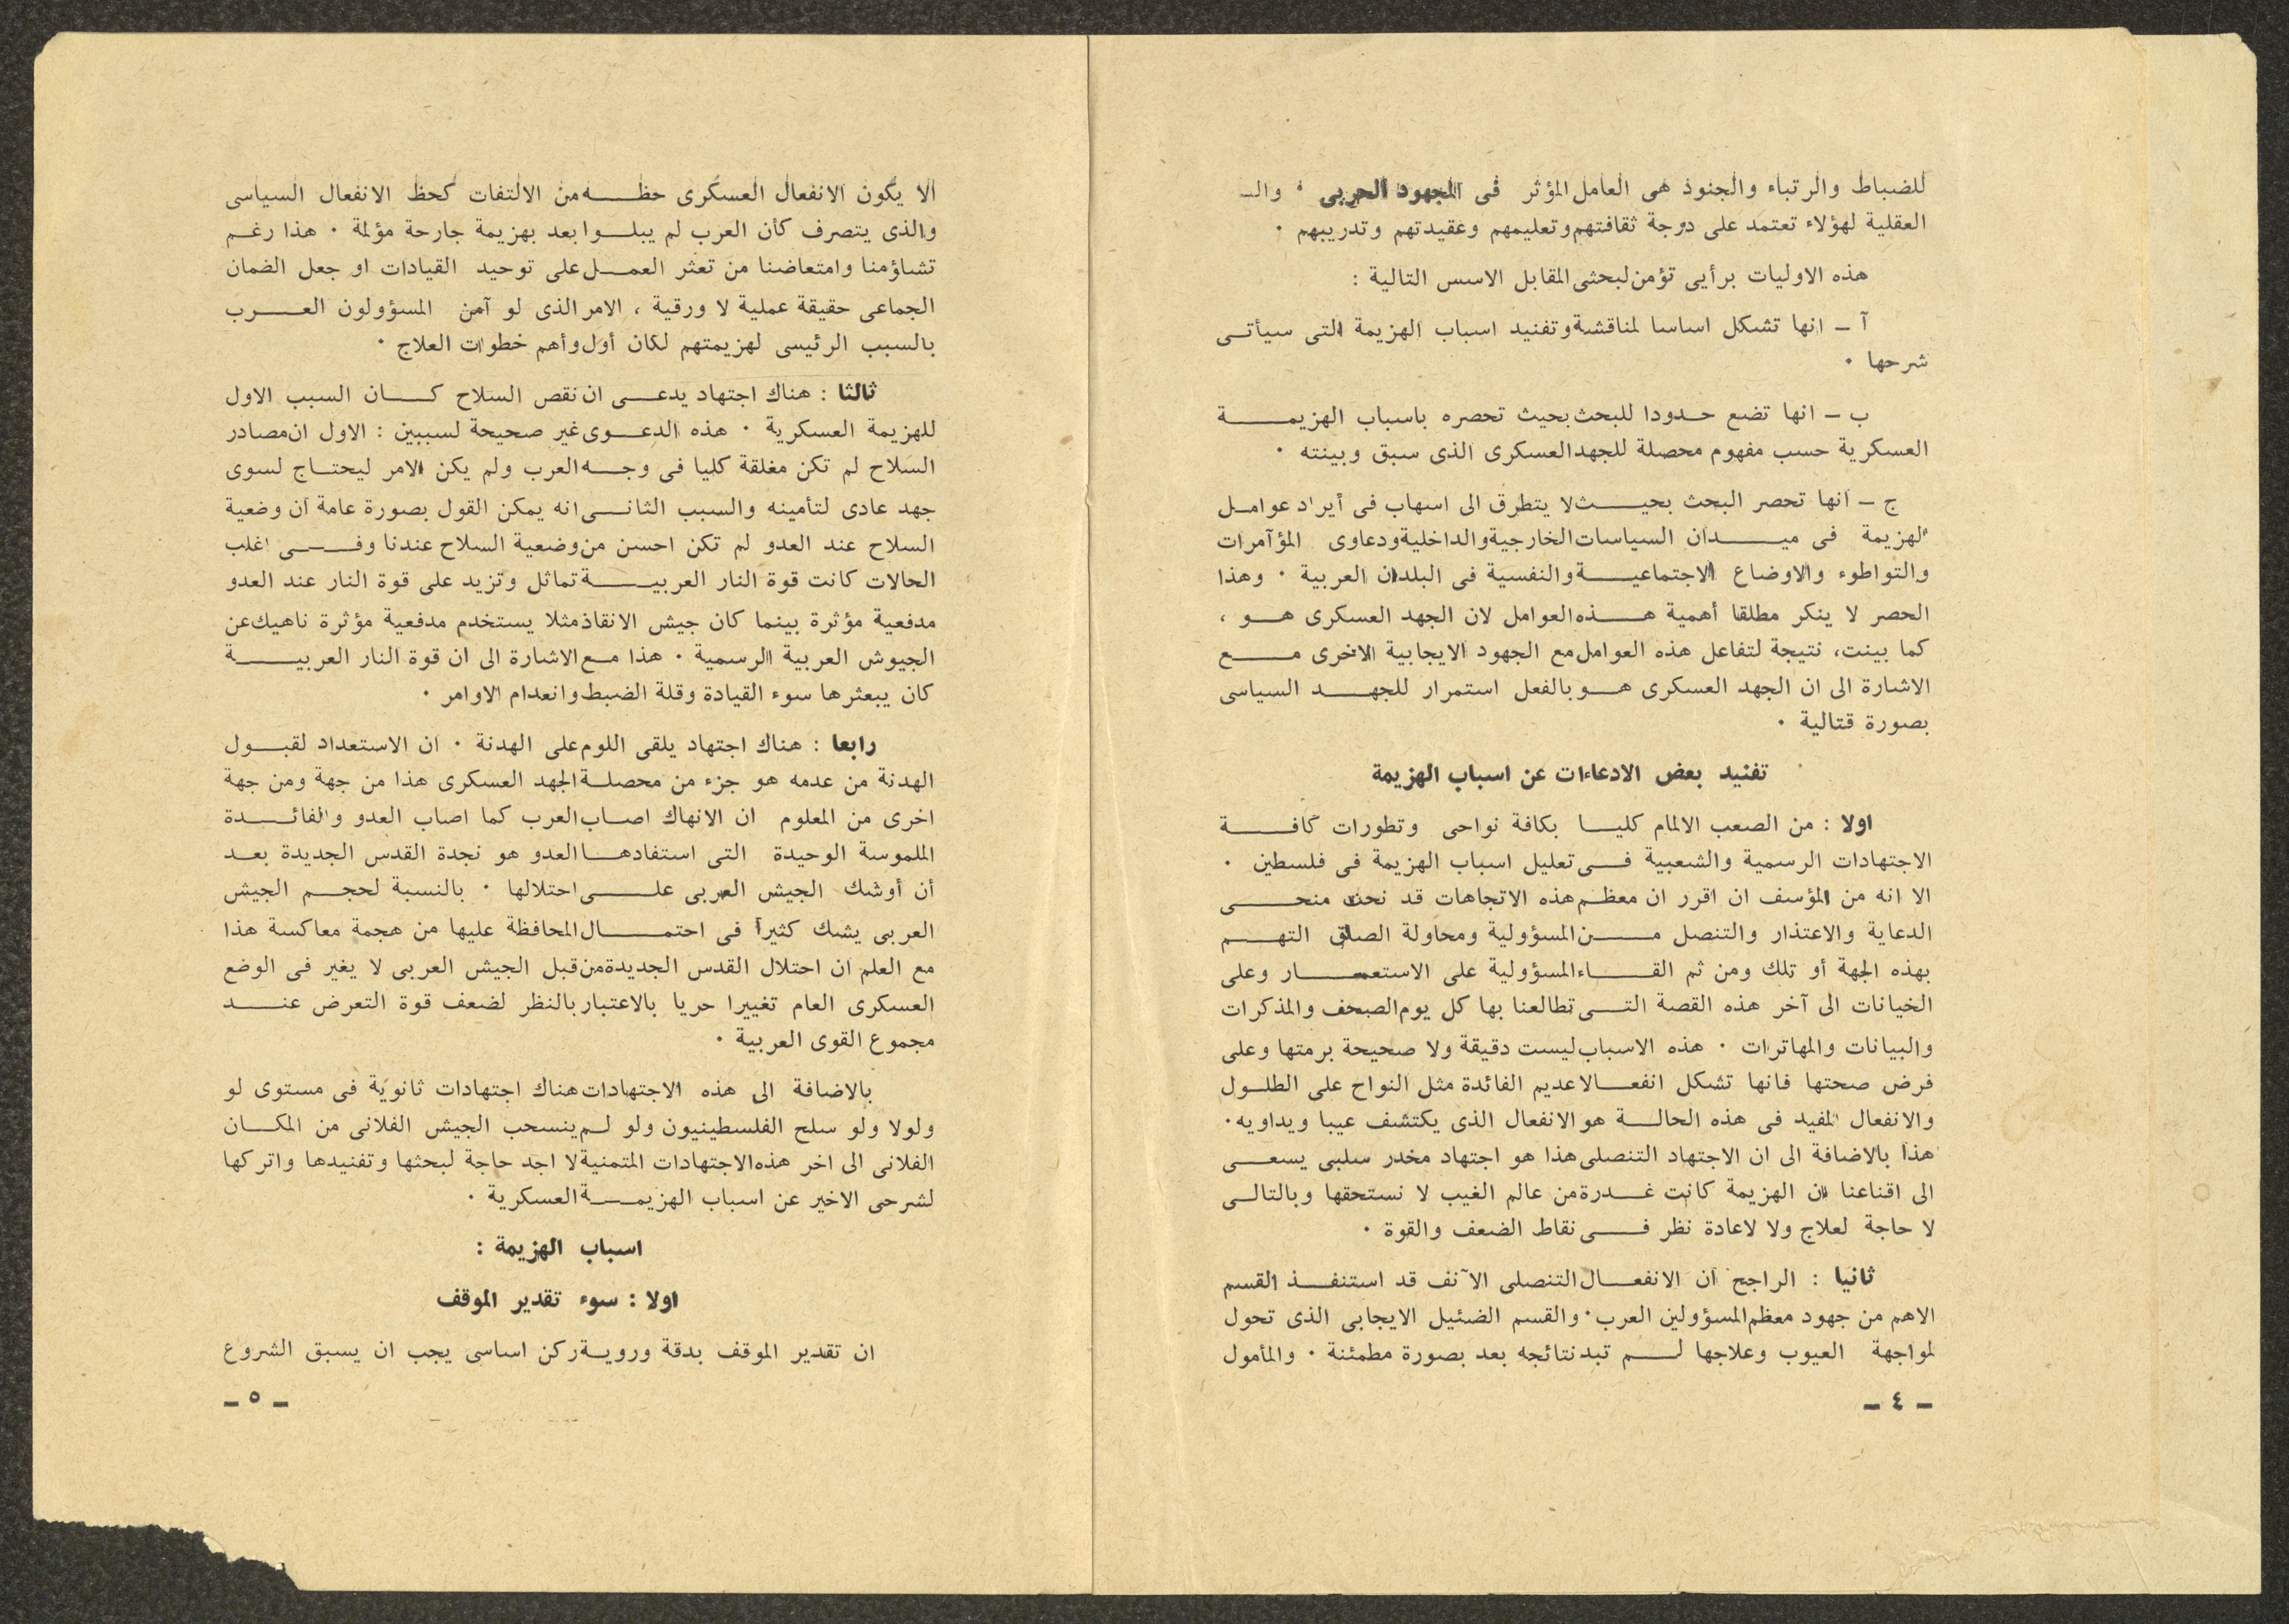 للضباط والرتباء والجنود هى العامل المؤثر فى المجهود الحربى ٠ والـ
العقلية لهؤلاء تعتمد على درجة ثقافتهم وتعليمهم وعقيدتهم وتدريبهم ٠
هذه الاوليات برأيى تؤمن لبحثى المقابل الاسس التالية :
آ ـ انها تشكل اساسا لمناقشة وتفنيد اسباب الهزيمة التى سيأتى
شرحها ٠
ب ـ انها تضع حدودا للبحث بحيث تحصره باسباب الهزيمة
العسكرية حسب مفهوم محصلة للجهد العسكرى الذى سبق وبينته ٠
ج ـ انها تحصر البحث بحيث لا يتطرق الى اسهاب فى أيراد عوامل
الهزيمة فى ميدان السياسات الخارجية والداخلية ودعاوى المؤآمرات
والتواطوء والاوضاع الاجتماعية والنفسية فى البلدان العربية ٠ وهذا
الحصر لا ينكر مطلقا أهمية هذه العوامل لان الجهد العسكرى هو ،
كما بينت، نتيجة لتفاعل هذه العوامل مع الجهود الايجابية الاخرى مع
الاشارة الى ان الجهد العسكرى هو بالفعل استمرار للجهد السياسى
بصورة قتالية ٠
تفنيد بعض الادعاءات عن اسباب الهزيمة
اولا : من الصعب الالمام كليا بكافة نواحى وتطورات كافة
الاجتهادات الرسمية والشعبية فى تعليل اسباب الهزيمة فى فلسطين ٠
الا انه من المؤسف ان اقرر ان معظم هذه الاتجاهات قد نحت منحى
الدعاية والاعتذار والتنصل من المسؤولية ومحاولة الصاق التهم
بهذه الجهة أو تلك ومن ثم القاء المسؤولية على الاستعمار وعلى
الخيانات الى آخر هذه القصة التى تطالعنا بها كل يوم الصحف والمذكرات
والبيانات والمهاترات ٠ هذه الاسباب ليست دقيقة ولا صحيحة برمتها وعلى
فرض صحتها فانها تشكل انفعالا عديم الفائدة مثل النواح على الطلول
والانفعال المفيد فى هذه الحالة هو الانفعال الذى يكتشف عيبا ويداويه٠
هذا بالاضافة الى ان الاجتهاد التنصلى هذا هو اجتهاد مخدر سلبى يسعى
الى اقناعنا ان الهزيمة كانت غدرة من عالم الغيب لا نستحقها وبالتالى
لا حاجة لعلاج ولا لاعادة نظر فى نقاط الضعف والقوة ٠
ثانيا : الراجح ان الانفعال التنصلى الآنف قد استنفذ القسم
الاهم من جهود معظم المسؤولين العرب ٠ والقسم الضئيل الايجابى الذى تحول
لمواجهة العيوب وعلاجها لم تبد نتائجه بعد بصورة مطمئنة ٠ والمأمول
ـ ٤ ـ
الا يكون الانفعال العسكرى حظه من الالتفات كحظ الانفعال السياسى
والذى يتصرف كأن العرب لم يبلوا بعد بهزيمة جارحة مؤلمة ٠ هذا رغم
تشاؤمنا وامتعاضنا من تعثر العمل على توحيد القيادات او جعل الضمان
الجماعى حقيقة عملية لا ورقية ، الامر الذى لو آمن المسؤولون العرب
بالسبب الرئيسى لهزيمتهم لكان أول وأهم خطوات العلاج ٠
ثالثا : هناك اجتهاد يدعى ان نقص السلاح كان السبب الاول
للهزيمة العسكرية ٠ هذه الدعوى غير صحيحة لسببين : الاول ان مصادر
السلاح لم تكن مغلقة كليا فى وجه العرب ولم يكن الامر ليحتاج لسوى
جهد عادى لتأمينه والسبب الثانى انه يمكن القول بصورة عامة ان وضعية
السلاح عند العدو لم تكن احسن من وضعية السلاح عندنا وفى اغلب
الحالات كانت قوة النار العربية تماثل وتزيد على قوة النار عند العدو
مدفعية مؤثرة بينما كان جيش الانقاذ مثلا يستخدم مدفعية مؤثرة ناهيك عن
الجيوش العربية الرسمية ٠ هذا مع الاشارة الى ان قوة النار العربية
كان يبعثرها سوء القيادة وقلة الضبط وانعدام الاوامر ٠
رابعا : هناك اجتهاد يلقى اللوم على الهدنة ٠ ان الاستعداد لقبول
الهدنة من عدمه هو جزء من محصلة الجهد العسكرى هذا من جهة ومن جهة
اخرى من المعلوم ان الانهاك اصاب العرب كما اصاب العدو والفائدة
الملموسة الوحيدة التى استفادها العدو هو نجدة القدس الجديدة بعد
أن أوشك الجيش العربى على احتلالها ٠ بالنسبة لحجم الجيش
العربى يشك كثيرا فى احتمال المحافظة عليها من هجمة معاكسة هذا
مع العلم ان احتلال القدس الجديدة من قبل الجيش العربى لا يغير فى الوضع
العسكرى العام تغييرا حريا بالاعتبار بالنظر لضعف قوة التعرض عند
مجموع القوى العربية ٠
بالاضافة الى هذه الاجتهادات هناك اجتهادات ثانوية فى مستوى لو
ولولا ولو سلح الفلسطينيون ولو لم ينسحب الجيش الفلانى من المكان
الفلانى الى اخر هذه الاجتهادات المتمنية لا اجد حاجة لبحثها وتفنيدها واتركها
لشرحى الاخير عن اسباب الهزيمة العسكرية ٠
اسباب الهزيمة :
اولا : سوء تقدير الموقف
ان تقدير الموقف بدقة وروية ركن اساسى يجب ان يسبق الشروع
ـ ٥ ـ